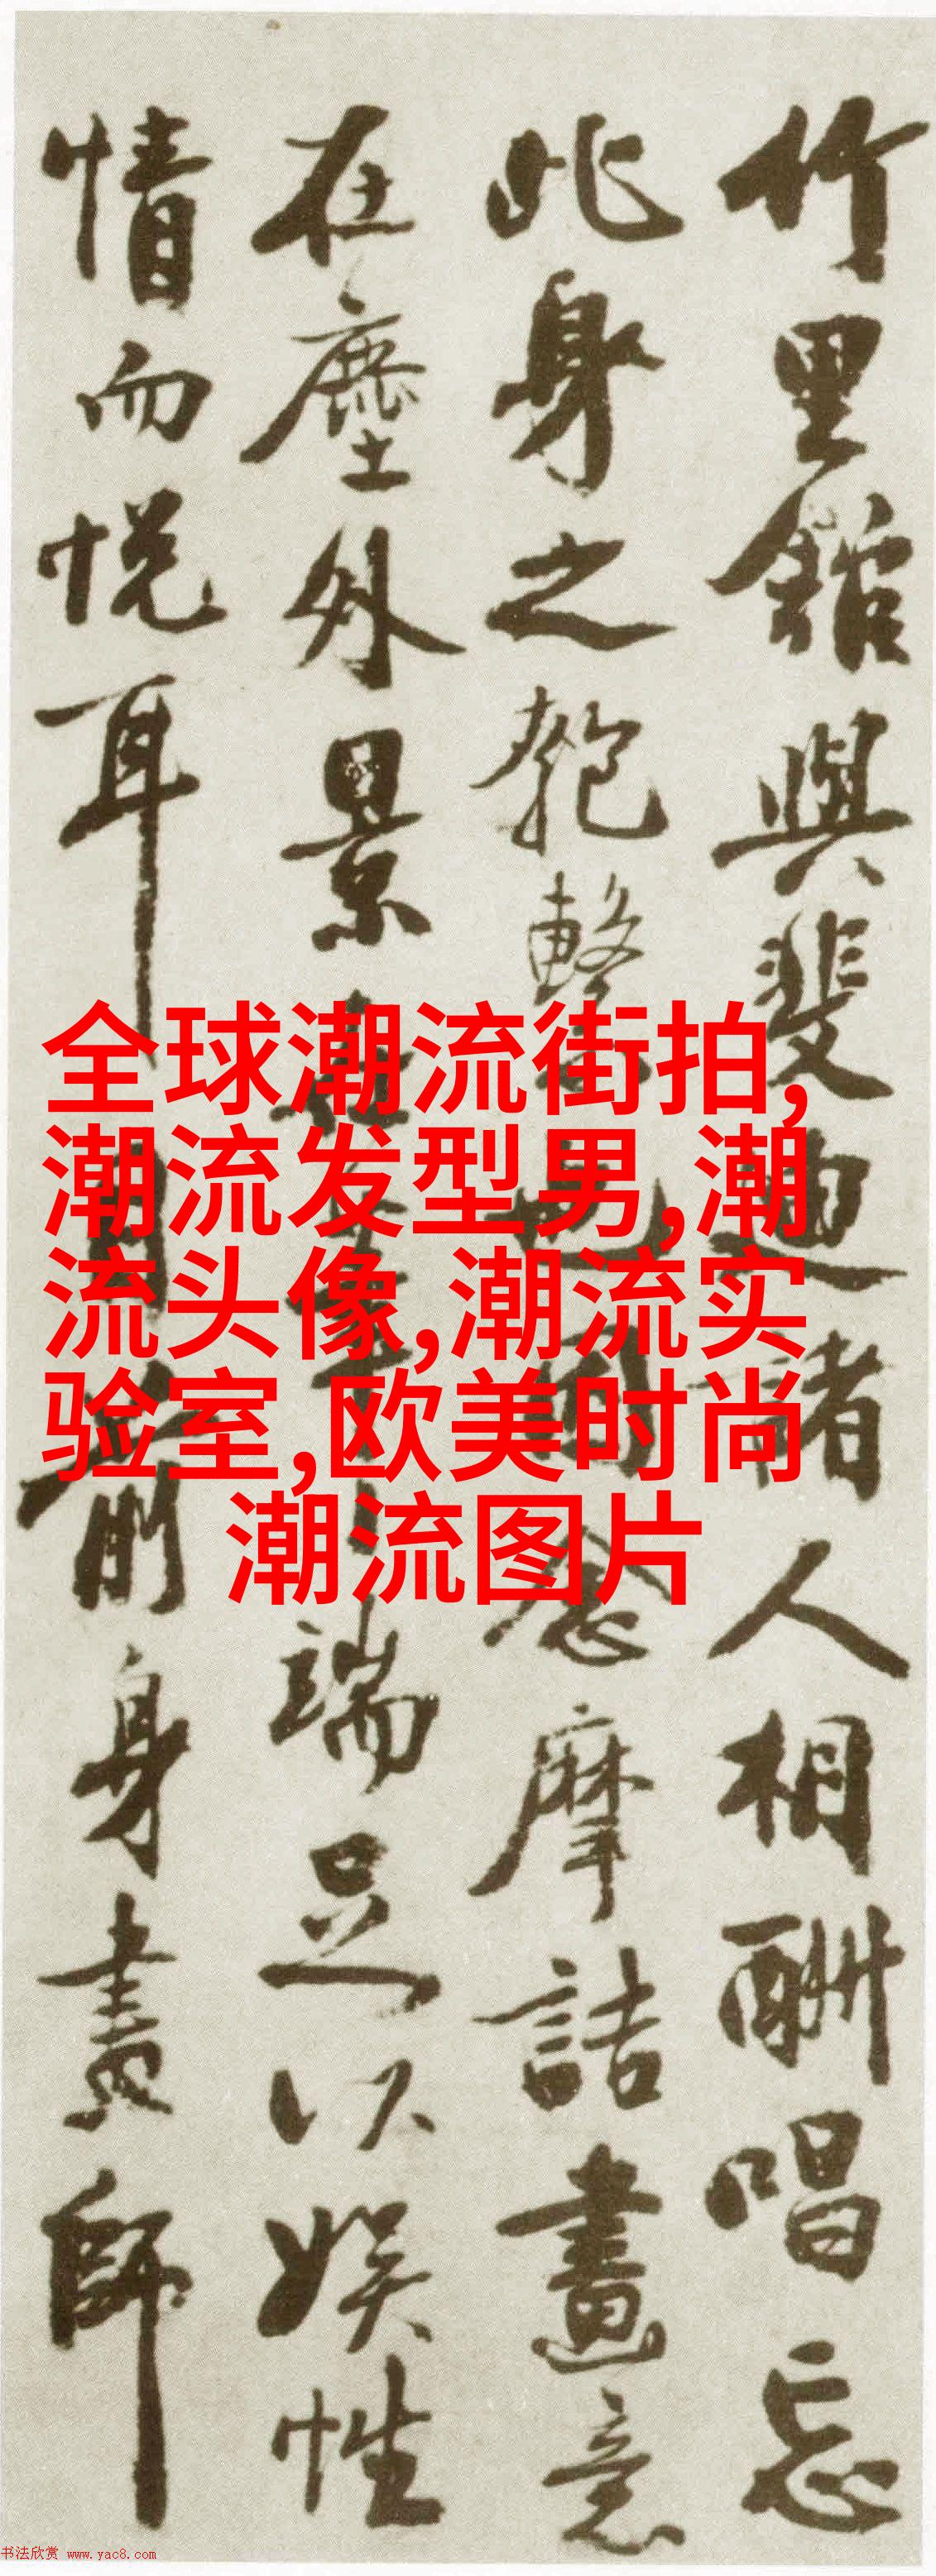 竹里館與斐迪諸人相酬唱忘
此身之匏繫也因念摩詰畫意
在塵外景端足以娛性
情而悅耳目前身畫師
全球潮流街拍,
潮流发型男,潮
流头像,潮流实
验室,欧美时尚
潮流图片
书法欣赏 www.yac8.com